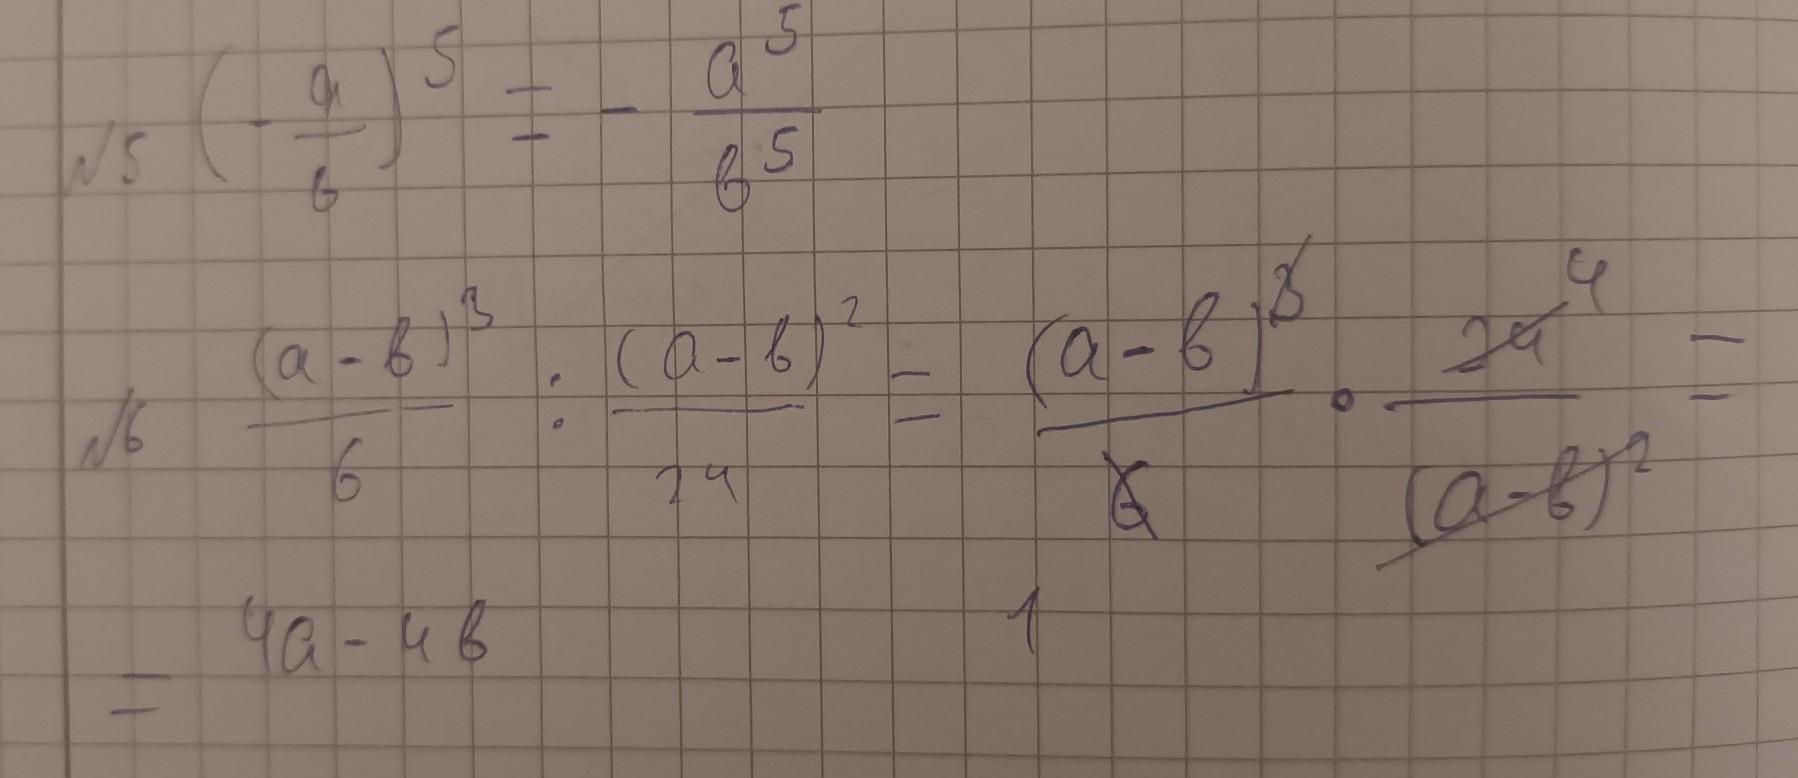 №5 (-a/в)^5 = - a^5/в^5
№6 (a-в)^3/6 : (a-в)^2/24 = (a-в)^3/6 · 24^4/(a-в)^2 =
= 4a-4в 1